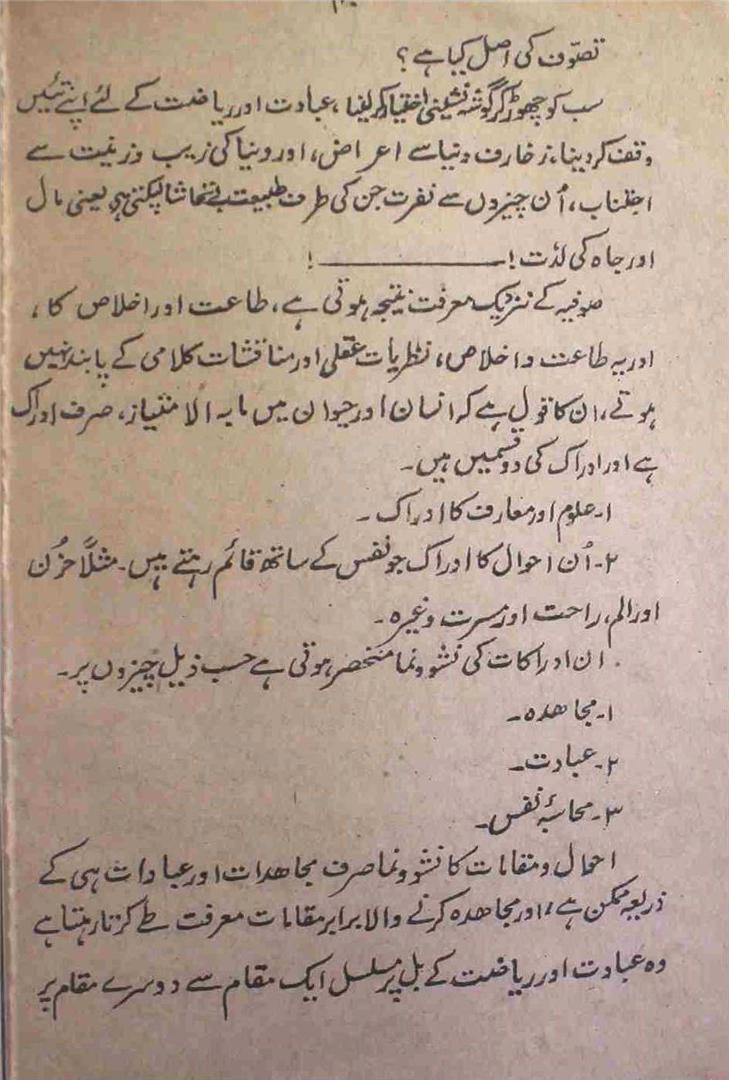 تصوّف کی اصل کیا ہے؟
سب کو چھوڑ کر گوشہ نشینی اختیار کر لینا، عبادت اور ریاضت کے لئے اپنے تئیں
وقف کر دینا، زخارف دنیا سے اعراض، اور دنیا کی زیب و زینت سے
اجتناب، اُن چیزوں سے نفرت جن کی طرف طبیعت بے تحاشا لپکتی ہی یعنی مال
اور جاہ کی لذت! ــــــــــــــــــ!
صوفیہ کے نزدیک معرفت نتیجہ ہوتی ہے، طاعت اور اخلاص کا،
اور یہ طاعت و اخلاص، نظریات عقلی اور مناقشات کلامی کے پابند نہیں
ہوتے، ان کا قول ہے کہ انسان اور حیوان میں مابہ الامتیاز، صرف ادراک
ہے اور ادراک کی دو قسمیں ہیں۔
۱۔ علوم اور معارف کا ادراک۔
۲۔ اُن احوال کا ادراک جو نفس کے ساتھ قائم رہتے ہیں۔ مثلاً حزُن
اور الم، راحت اور مسرت وغیرہ۔
ان ادراکات کی نشوونما منحصر ہوتی ہے حسب ذیل چیزوں پر۔
۱۔ مجاھدہ۔
۲۔ عبادت۔
۳۔ محاسبۂ نفس۔
احوال و مقامات کا نشوونما صرف مجاھدات اور عبادات ہی کے
ذریعہ ممکن ہے، اور مجاھدہ کرنے والا برابر مقامات معرفت طے کرتا رہتا ہے
وہ عبادت اور ریاضت کے بل پر مسلسل ایک مقام سے دوسرے مقام پر